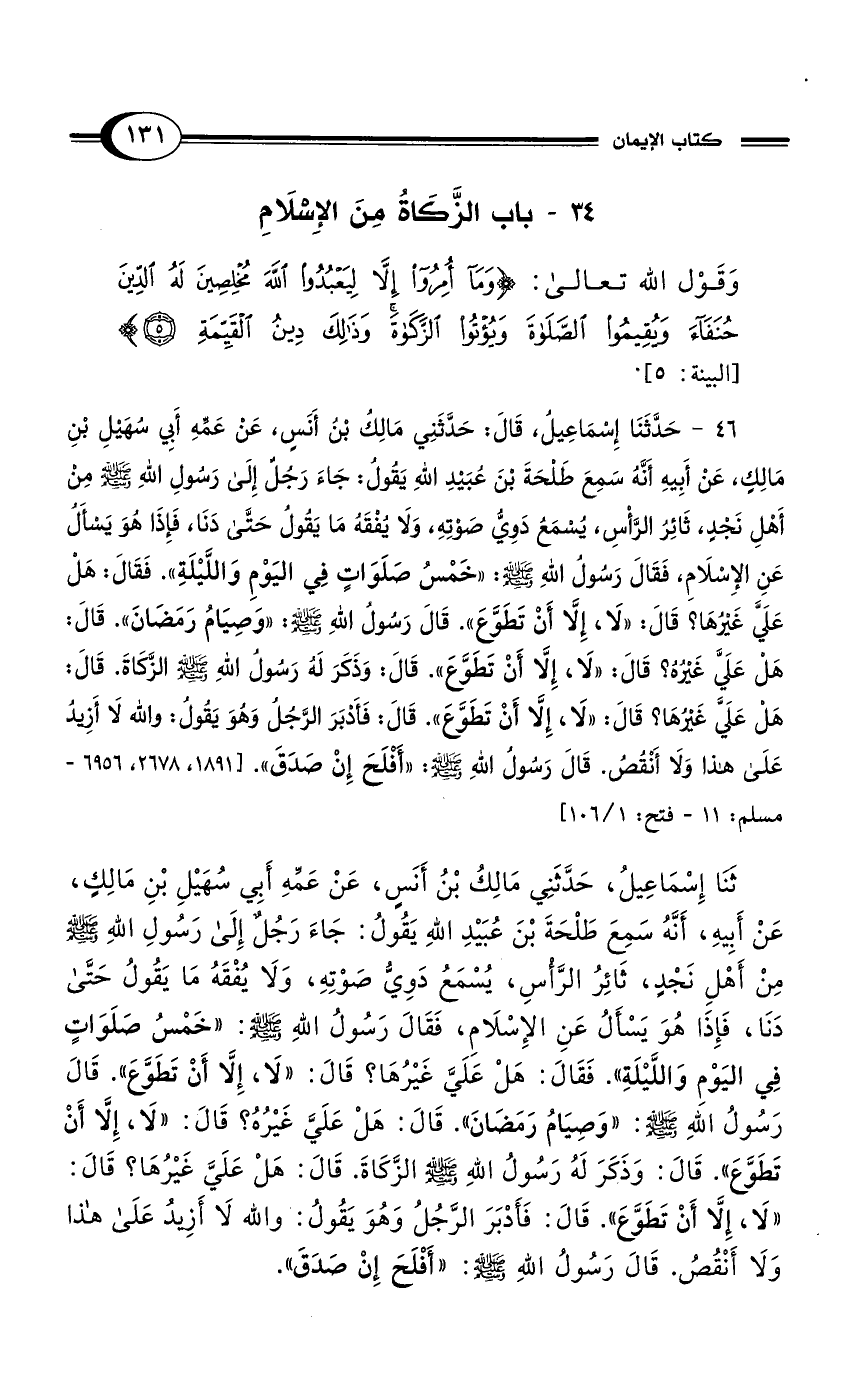 كتاب الإيمان ١٣١
٣٤ - باب الزَّكَاةُ مِنَ الإِسْلَامِ
وَقَوْل الله تعالىٰ: ﴿وَمَآ أُمِرُوٓا۟ إِلَّا لِيَعْبُدُوا۟ ٱللَّهَ مُخْلِصِينَ لَهُ ٱلدِّينَ
حُنَفَآءَ وَيُقِيمُوا۟ ٱلصَّلَوٰةَ وَيُؤْتُوا۟ ٱلزَّكَوٰةَ ۚ وَذَٰلِكَ دِينُ ٱلْقَيِّمَةِ ۝٥﴾
[البينة: ٥].
٤٦ - حَدَّثَنَا إِسْمَاعِيلُ، قَالَ: حَدَّثَنِي مَالِكُ بْنُ أَنَسٍ، عَنْ عَمِّهِ أَبِي سُهَيْلِ بْنِ
مَالِكٍ، عَنْ أَبِيهِ أَنَّهُ سَمِعَ طَلْحَةَ بْنَ عُبَيْدِ اللهِ يَقُولُ: جَاءَ رَجُلٌ إِلَىٰ رَسُولِ اللهِ ﷺ مِنْ
أَهْلِ نَجْدٍ، ثَائِرُ الرَّأْسِ، يُسْمَعُ دَوِيُّ صَوْتِهِ، وَلَا يُفْقَهُ مَا يَقُولُ حَتَّىٰ دَنَا، فَإِذَا هُوَ يَسْأَلُ
عَنِ الإِسْلَامِ، فَقَالَ رَسُولُ اللهِ ﷺ: «خَمْسُ صَلَوَاتٍ فِي اليَوْمِ وَاللَّيْلَةِ». فَقَالَ: هَلْ
عَلَيَّ غَيْرُهَا؟ قَالَ: «لَا، إِلَّا أَنْ تَطَوَّعَ». قَالَ رَسُولُ اللهِ ﷺ: «وَصِيَامُ رَمَضَانَ». قَالَ:
هَلْ عَلَيَّ غَيْرُهُ؟ قَالَ: «لَا، إِلَّا أَنْ تَطَوَّعَ». قَالَ: وَذَكَرَ لَهُ رَسُولُ اللهِ ﷺ الزَّكَاةَ. قَالَ:
هَلْ عَلَيَّ غَيْرُهَا؟ قَالَ: «لَا، إِلَّا أَنْ تَطَوَّعَ». قَالَ: فَأَدْبَرَ الرَّجُلُ وَهُوَ يَقُولُ: والله لَا أَزِيدُ
عَلَىٰ هٰذا وَلَا أَنْقُصُ. قَالَ رَسُولُ اللهِ ﷺ: «أَفْلَحَ إِنْ صَدَقَ». [١٨٩١، ٢٦٧٨، ٦٩٥٦ -
مسلم: ١١ - فتح: ١/١٠٦]
ثَنَا إِسْمَاعِيلُ، حَدَّثَنِي مَالِكُ بْنُ أَنَسٍ، عَنْ عَمِّهِ أَبِي سُهَيْلِ بْنِ مَالِكٍ،
عَنْ أَبِيهِ، أَنَّهُ سَمِعَ طَلْحَةَ بْنَ عُبَيْدِ اللهِ يَقُولُ: جَاءَ رَجُلٌ إِلَىٰ رَسُولِ اللهِ ﷺ
مِنْ أَهْلِ نَجْدٍ، ثَائِرُ الرَّأْسِ، يُسْمَعُ دَوِيُّ صَوْتِهِ، وَلَا يُفْقَهُ مَا يَقُولُ حَتَّىٰ
دَنَا، فَإِذَا هُوَ يَسْأَلُ عَنِ الإِسْلَامِ، فَقَالَ رَسُولُ اللهِ ﷺ: «خَمْسُ صَلَوَاتٍ
فِي اليَوْمِ وَاللَّيْلَةِ». فَقَالَ: هَلْ عَلَيَّ غَيْرُهَا؟ قَالَ: «لَا، إِلَّا أَنْ تَطَوَّعَ». قَالَ
رَسُولُ اللهِ ﷺ: «وَصِيَامُ رَمَضَانَ». قَالَ: هَلْ عَلَيَّ غَيْرُهُ؟ قَالَ: «لَا، إِلَّا أَنْ
تَطَوَّعَ». قَالَ: وَذَكَرَ لَهُ رَسُولُ اللهِ ﷺ الزَّكَاةَ. قَالَ: هَلْ عَلَيَّ غَيْرُهَا؟ قَالَ:
«لَا، إِلَّا أَنْ تَطَوَّعَ». قَالَ: فَأَدْبَرَ الرَّجُلُ وَهُوَ يَقُولُ: والله لَا أَزِيدُ عَلَىٰ هٰذا
وَلَا أَنْقُصُ. قَالَ رَسُولُ اللهِ ﷺ: «أَفْلَحَ إِنْ صَدَقَ».